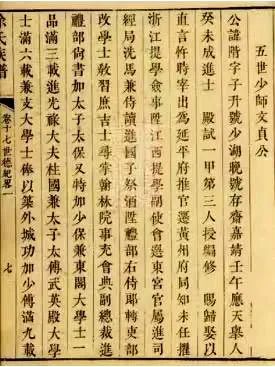 五世少師文貞公
公諱階字子升號少湖晚號存齋嘉靖壬午應天舉人
癸未成進士 殿試一甲第三人授編修 賜歸娶以
直言忤時宰出為延平府推官遷黃州府同知未任擢
浙江提學僉事陞江西提學副使會選東宮官屬進司
經局洗馬兼侍讀進國子祭酒陞禮部右侍郎轉吏部
改學士教習庶吉士尋掌翰林院事充會典副總裁進
禮部尚書加太子太保又特加少保兼東閣大學士一
品滿三載進光祿大夫柱國兼太子太傅武英殿大學
士滿六載兼支大學士俸以築外城功加少傅滿九載
氏族譜
卷十七世德紀畧一
七